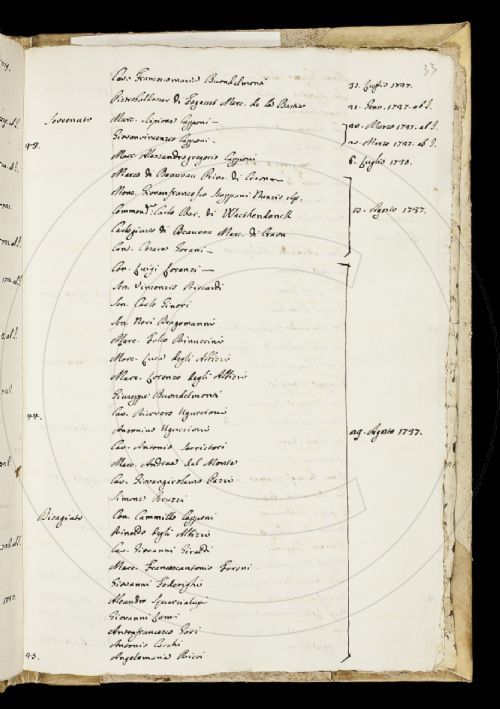 33
Cav. Francescomaria Buondelmonti 31. Luglio 1737.
21. Genn. 1737. ab I.
Sovvenuto Marc. Scipione Capponi 20. Marzo 1737. ab I.
Giovanvincenzo Capponi 20. Marzo 1737. ab I.
43.
Marc. Alessandrogregorio Capponi 6. Luglio 1738.
Marco di Beauvau Prin. di Craon
Mons. Giovanfrancesco Stoppani Nunzio Ap.
Commend. Carlo Bar. di Wachtendonck 10. Agosto 1737.
di Beauvau Marc. di Craon
Cav. Cesare
Cav. Luigi Lorenzi
Sen. Vincenzio Riccardi
Sen. Carlo Ginori
Sen. Neri Dragomanni
Marc. Folco Rinuccini
Marc. Luca degli Albizzi
Marc. Lorenzo degli Albizzi
Giuseppe Buondelmonti
44. Cav. Ricovero Uguccioni
Antonino Uguccioni 29. Agosto 1737.
Cav. Antonio Serristori
Marc. Andrea del Monte
Cav. Giovangirolamo Pazzi
Simone Peruzzi
Disagiato Con. Cammillo Capponi
Rinaldo degli Albizzi
Cav. Giovanni Giraldi
Marc. Francescantonio Feroni
Giovanni Federighi
Aleandro Squarcialupi
Giovanni
Antonfrancesco Gori
Antonio Cocchi
45. Angelomaria Ricci